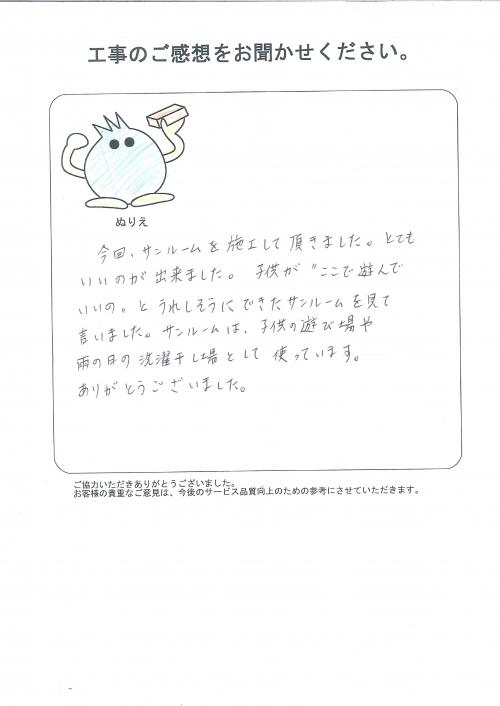 工事のご感想をお聞かせください。
ぬりえ
今回、サンルームを施工して頂きました。とても
いいのが出来ました。子供が〝ここで遊んで
いいの。とうれしそうに、できたサンルームを見て
言いました。サンルームは、子供の遊び場や
雨の日の洗濯干し場として使っています。
ありがとうございました。
ご協力いただきありがとうございました。
お客様の貴重なご意見は、今後のサービス品質向上のための参考にさせていただきます。